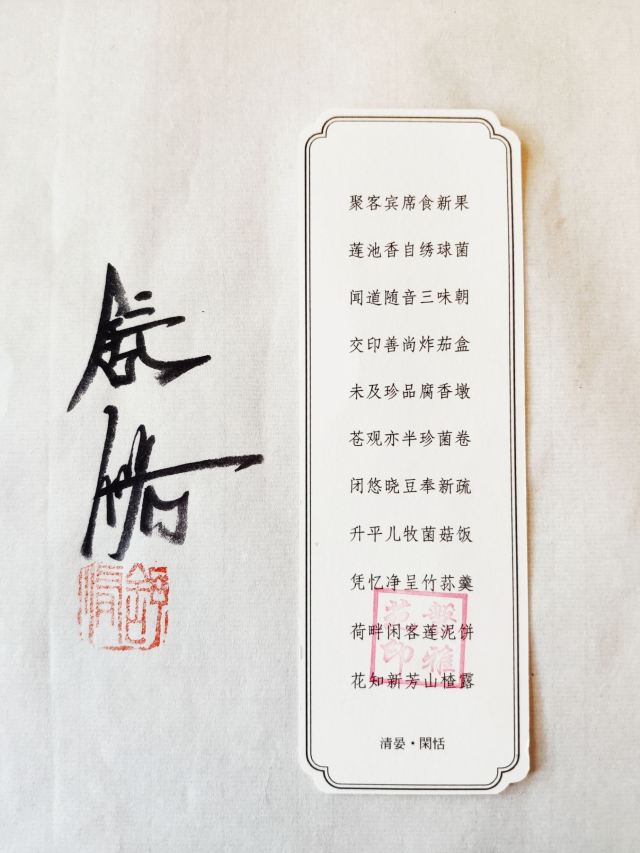 聚客宾席食新果
莲池香自绣球菌
闻道随音三味朝
交印善尚炸茄盒
未及珍品腐香墩
苍观亦半珍菌卷
闭悠晓豆奉新疏
升平儿牧菌菇饭
凭忆净呈竹荪羹
荷畔闲客莲泥饼
花知新芳山楂露
清晏·閑恬